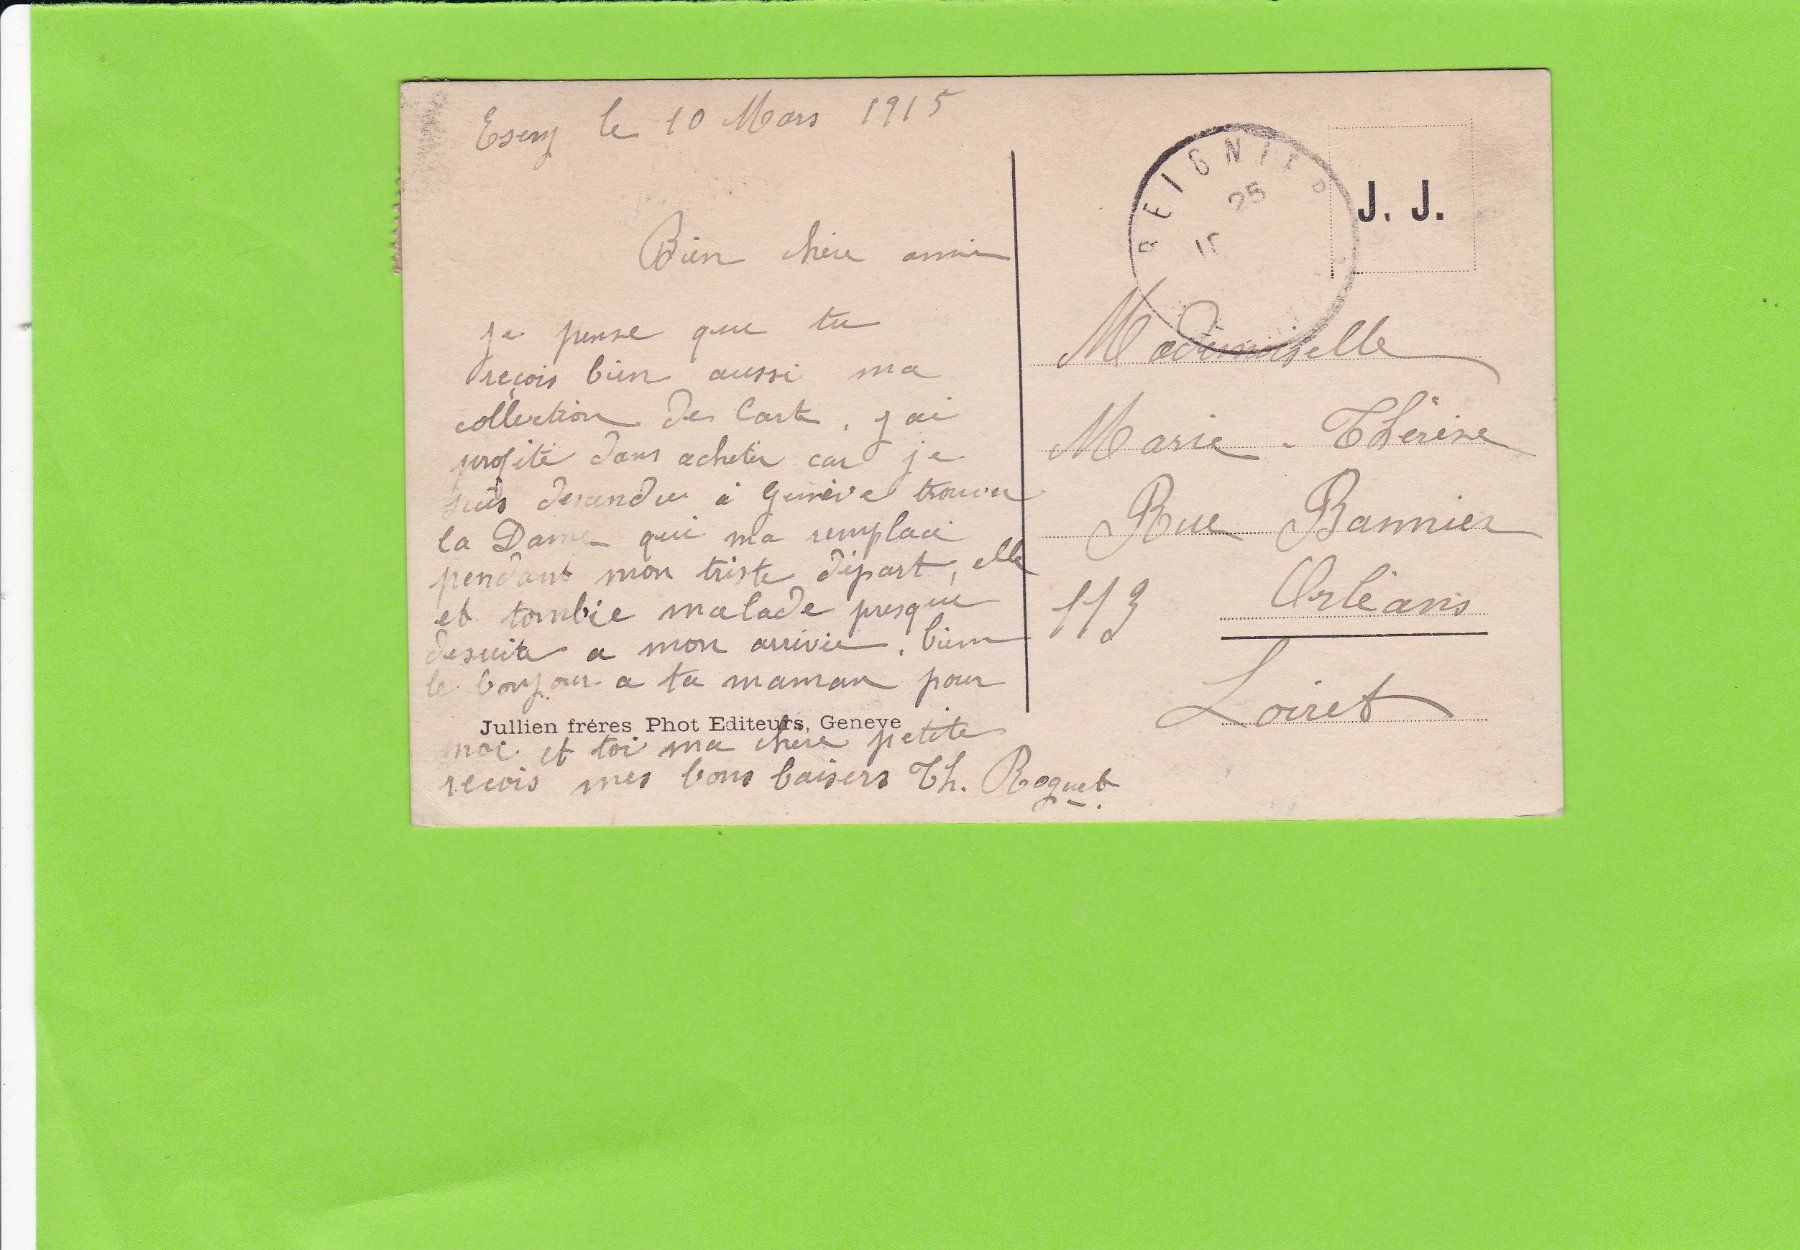 Esery le 10 Mars 1915
Bien chère amie
je pense que tu
reçois bien aussi ma
collection de Carte. j'ai
profité dans acheter car je
suis descendue à Genève trouver
la Dame qui ma remplacé
pendant mon triste départ, elle
et tombée malade presque
desuite a mon arrivée. bien
le bonjour a ta maman pour
Jullien fréres Phot Editeurs, Geneve
moi et toi ma chère petite
recois mes bons baisers Th. Roguet
REIGNIER
25
J. J.
Mademoiselle
Marie-Thérèse
Rue Bannier
113 Orléans
Loiret